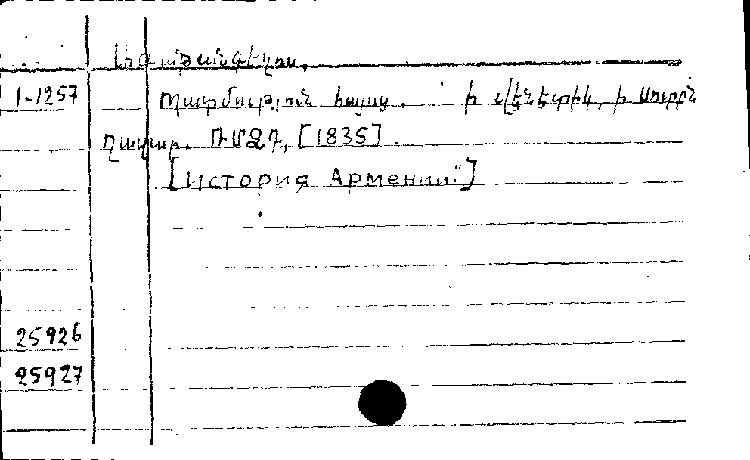 Ագաթանգեղոս.
1-1257 Պատմութիւն հայոց. ի վէնէտիկ, ի սուրբն
Ղազար. ՌՄՁԴ, [1835].
[История Армении"]
25926
25927